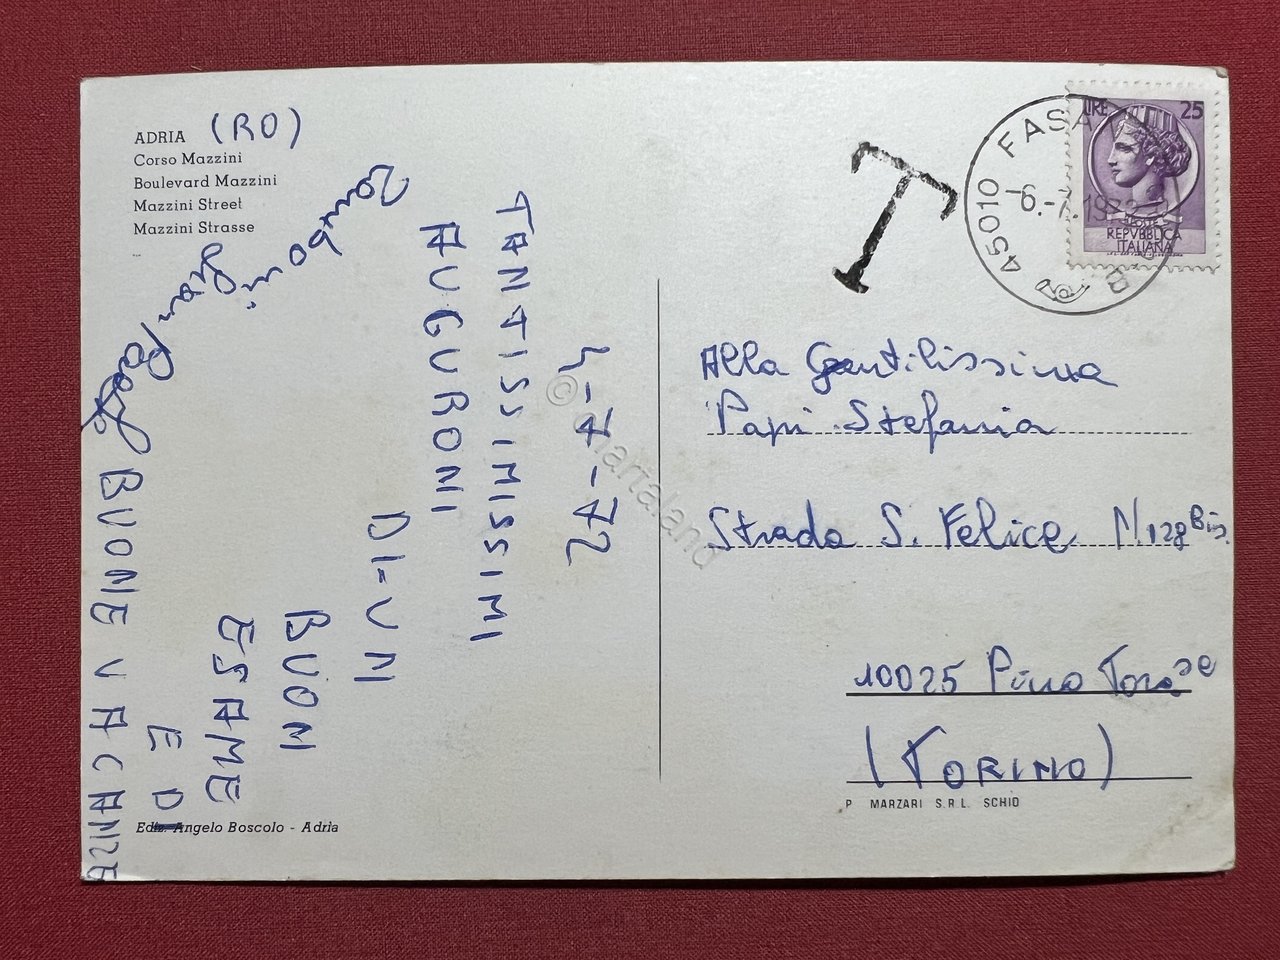 ADRIA (RO)
Corso Mazzini
Boulevard Mazzini
Mazzini Street
Mazzini Strasse
4-7-72
TANTISSIMISSIMI
AUGURONI
DI-UN
BUON
ESAME
E DI
BUONE VACANZE
Zamboni
Gian Paolo
Ediz. Angelo Boscolo - Adria
LIRE 25
POSTE
REPVBBLICA
ITALIANA
45010 FASA B
-6.-7.1972
T
Alla Gentilissima
Papi Stefania
Strada S. Felice N.128 Bis.
10025 Pino Torse
(TORINO)
P MARZARI S.R.L. SCHIO
© Cartaland